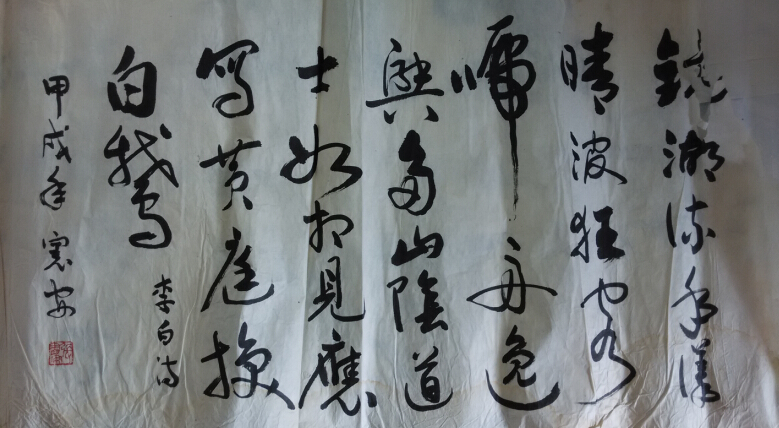 鏡湖流水漾
晴波狂客
歸舟逸
興多山陰道
士如相見應
寫黄庭換
白鵝
李白詩
甲戌年